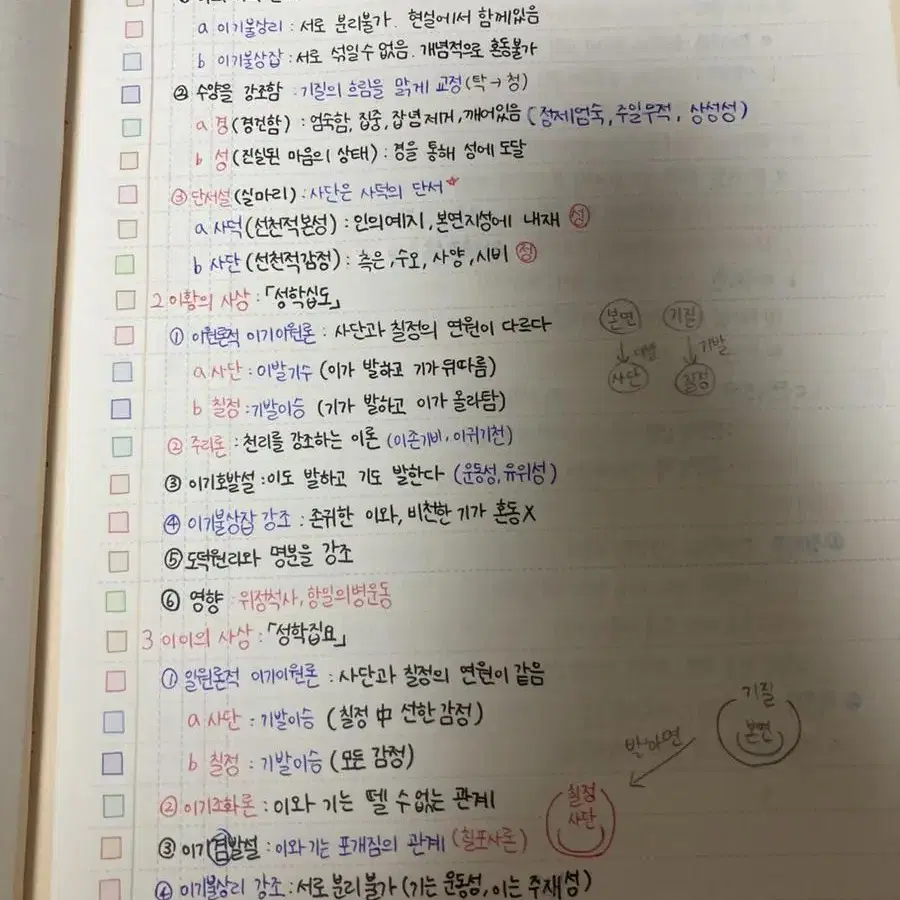 a 이기불상리 : 서로 분리불가. 현실에서 함께있음
b 이기불상잡 : 서로 섞일수 없음. 개념적으로 혼동불가
② 수양을 강조함 : 기질의 흐림을 맑게 교정(탁→청)
a 경(경건함) : 엄숙함, 집중, 잡념제거, 깨어있음 (정제엄숙, 주일무적, 상성성)
b 성(진실된 마음의 상태) : 경을 통해 성에 도달
③ 단서설(실마리) : 사단은 사덕의 단서☆
a 사덕(선천적본성) : 인의예지, 본연지성에 내재 성
b 사단(선천적감정) : 측은, 수오, 사양, 시비 정
2 이황의 사상 : 「성학십도」
① 이원론적 이기이원론 : 사단과 칠정의 연원이 다르다
본연 기질
a 사단 : 이발기수 (이가 발하고 기가 뒤따름)
↓ ↓ 기발
사단 칠정
b 칠정 : 기발이승 (기가 발하고 이가 올라탐)
② 주리론 : 천리를 강조하는 이론 (이존기비, 이귀기천)
③ 이기호발설 : 이도 발하고 기도 발한다 (운동성, 유위성)
④ 이기불상잡 강조 : 존귀한 이와, 비천한 기가 혼동X
⑤ 도덕원리와 명분을 강조
⑥ 영향 : 위정척사, 항일의병운동
3 이이의 사상 : 「성학집요」
① 일원론적 이기이원론 : 사단과 칠정의 연원이 같음
a 사단 : 기발이승 (칠정 中 선한 감정)
기질
본연
발하면
b 칠정 : 기발이승 (모든 감정)
② 이기조화론 : 이와 기는 뗄 수 없는 관계
칠정
사단
③ 이기겸발설 : 이와 기는 포개짐의 관계 (칠포사론)
④ 이기불상리 강조 : 서로 분리불가 (기는 운동성, 이는 주재성)